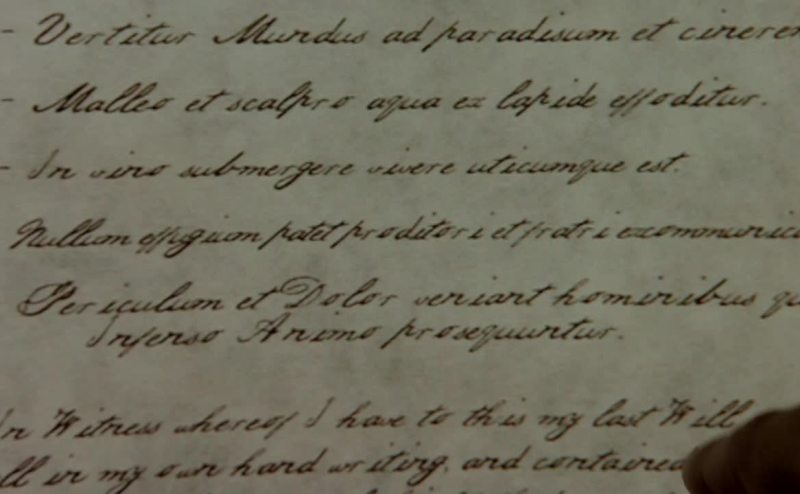 - Vertitur Mundus ad paradisum et cinerem
- Malleo et scalpro aqua ex lapide effoditur.
- In vino submergere vivere uticumque est.
Nullum effigium patet proditori et fratri excommunic
Periculum et Dolor veniant hominibus qu
Infenso Animo prosequuntur.
In Witness whereof I have to this my last Will
ll in my own hand writing, and contained